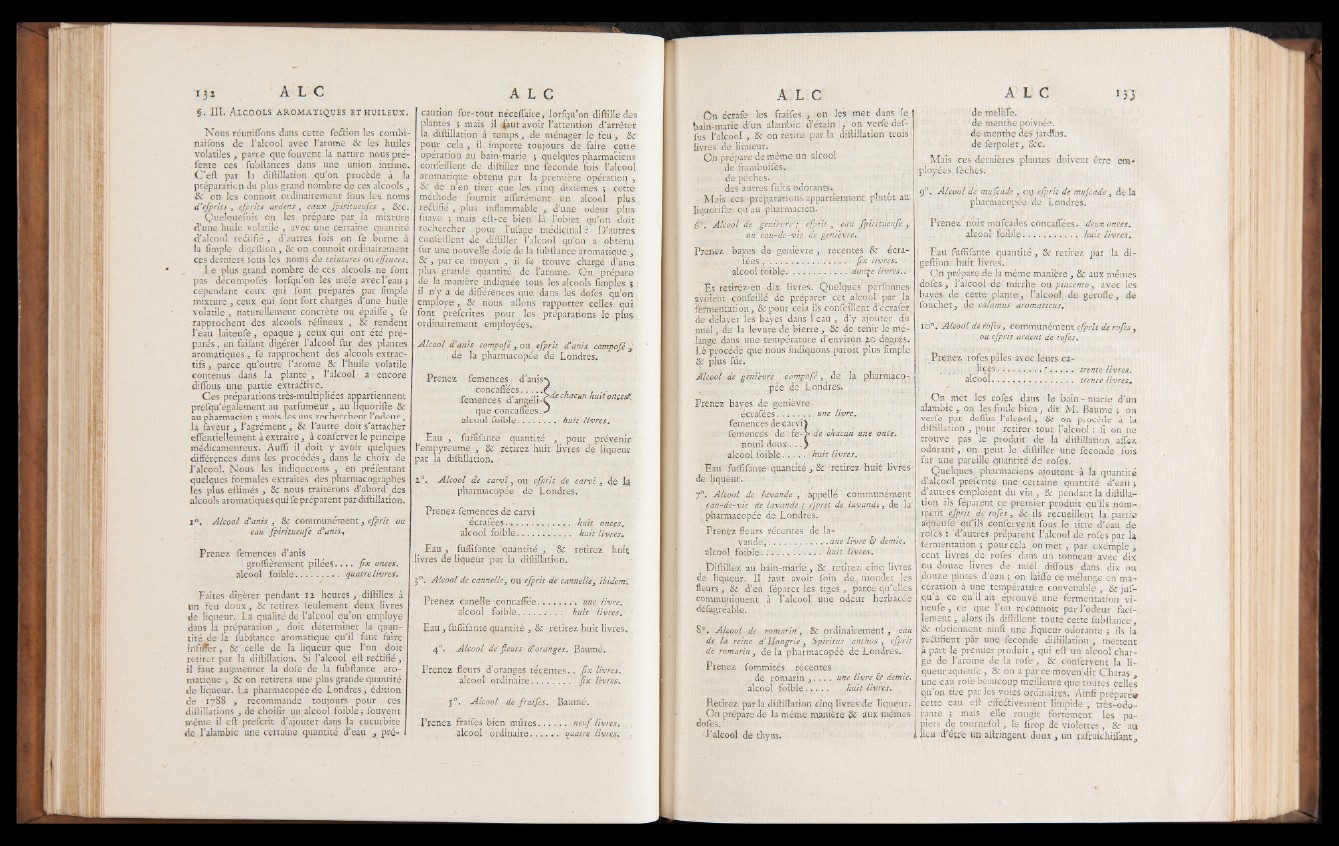 132 A L C
§. III. ALCOOLS AROMATIQUES ET HUILEUX.
Nous réuniſſons dans cette ſection les combi-
naiſons de l'alcool avec l'arome & les huiles
volatiles , parce que ſouvent la nature nous pré-
ſente ces ſubſtances dans une union intime.
C'eſt par la diſtillation qu'on procède à la
préparation du plus grand nombre de ces alcools ,
& on les connoît ordinairement ſous les noms
d'eſprits , eſprits ardens , eaux ſpiritueuſes , &c.
Quelquefois on les prépare par la mixture
d'une huile volatile , avec une certaine quantité
d'alcool rectifié , d'autres fois on ſe borne à
la ſimple digeſtion , & on connoît ordinairement
ces derniers ſous les noms de teintures ou eſſences.
Le plus grand nombre de ces alcools ne ſont
pas décompoſés lorſqu'on les mêle avec l'eau ;
cependant ceux qui ſont préparés par ſimple
mixture , ceux qui ſont fort chargés d'une huile
volatile , naturellement concrète ou épaiſſe , ſe
rapprochent des alcools réſineux , & rendent
l'eau laiteuſe , opaque ; ceux qui ont été pré-
parés , en faiſant digérer l'alcool ſur des plantes
aromatiques , ſe rapprochent des alcools extrac-
tifs , parce qu'outre l'arome & l'huile volatile
contenus dans la plante , l'alcool a encore
diſſous une partie extractive.
Ces préparations très-multipliées appartiennent
preſqu'également au parfumeur , au liquoriſte &
au pharmacien ; mais les uns recherchent l'odeur ,
la ſaveur , l'agrément , & l'autre doit s'attacher
eſſentiellement à extraire , à conſerver le principe
médicamenteux. Auſſi il doit y avoir quelques
différences dans les procédés , dans le choix de
l'alcool. Nous les indiquerons , en préſentant
quelques formules extraites des pharmacographes
les plus eſtimés , & nous traiterons d'abord des
alcools aromatiques qui ſe préparent par diſtillation.
1°. Alcool d'anis , & communément, eſprit ou
eau ſpiritueuſe d'anis.
Prenez ſemences d'anis
groſſièrement pilées.... ſix onces.
alcool foible......... quatre livres.
Faites digérer pendant 12 heures , diſtillez à
un feu doux , & retirez ſeulement deux livres
de liqueur. La qualité de l'alcool qu'on employe
dans la préparation , doit déterminer la quan-
tité de la ſubſtance aromatique qu'il faut faire
infuſer , & celle de la liqueur que l'on doit
retirer par la diſtillation. Si l'alcool eſt rectifié ,
il faut augmenter la doſe de la ſubſtance aro-
matique , & on retirera une plus grande quantité
de liqueur. La pharmacopée de Londres , édition
de 1788 , recommande toujours pour ces
diſtillations , de choiſir un alcool foible ; ſouvent
même il eſt preſcrit d'ajouter dans la cucurbite
de l'alambic une certaine quantité d'eau , pré-
A L C
caution ſur-tout néceſſaire , lorſqu'on diſtille des
plantes ; mais il faut avoir l'attention d'arrêter
la diſtillation à temps , de ménager le feu , &
pour cela , il importe toujours de faire cette
opération au bain-marie ; quelques pharmaciens
conſeillent de diſtiller une ſeconde fois l'alcool
aromatique obtenu par la première opération ,
& de n'en tirer que les cinq dixièmes ; cette
méthode fournit aſſurément un alcool plus
rectifié , plus inflammable , d'une odeur plus
ſuave ; mais eſt-ce bien là l'objet qu'on doit
rechercher pour l'uſage médicinal ? D'autres
conſeillent de diſtiller l'alcool qu'on a obtenu
ſur une nouvelle doſe de la ſubſtance aromatique ,
& , par ce moyen , il ſe trouve chargé d'une
plus grande quantité de l'arome. On prépare
de la manière indiquée tous les alcools ſimples ;
il n'y a de différences que dans les doſes qu'on
employe , & nous allons rapporter celles qui
ſont preſcrites pour les préparations le plus
ordinairement employées.
Alcool d'anis compoſé , ou eſprit d'anis compoſé ,
de la pharmacopée de Londres.
Prenez ſemences d'anis
concaſſées.....
ſemences d'angéli- de chacun huit onces.
que concaſſées.
alcool foible........ huit livres.
Eau , ſuffiſante quantité , pour prévenir
l'empyreume , & retirez huit livres de liqueur
par la diſtillation.
2°. Alcool de carvi , ou eſprit de carvi , de la
pharmacopée de Londres.
Prenez ſemences de carvi
écraſées............. huit onces.
alcool foible........... huit livres.
Eau , ſuffiſante quantité , & retirez huit
livres de liqueur par la diſtillation.
3°. Alcool de cannelle, ou eſprit de cannelle, ibidem.
Prenez canelle concaſſée........ une livre.
alcool foible.......... huit livres.
Eau , ſuffiſante quantité , & retirez huit livres.
4°. Alcool de fleurs d'oranges. Baumé.
Prenez fleurs d'oranges récentes.. ſix livres.
alcool ordinaire........ ſix livres.
5°. Alcool de fraiſes. Baumé.
Prenez fraiſes bien mûres...... neuf livres.
alcool ordinaire...... quatre livres.
A L C
On écraſe les fraiſes , on les met dans le
bain-marie d'un alambic d'étain , on verſe deſ-
ſus l'alcool , & on retire par la diſtillation trois
livres de liqueur.
On prépare de même un alcool
de framboiſes.
de pêches.
des autres fruits odorants.
Mais ces préparations appartiennent plutôt au
liquoriſte qu'au pharmacien.
6°. Alcool de genièvre ; eſprit , eau ſpiritueuſe ,
ou eau-de-vie de genièvre.
Prenez bayes de genièvre , récentes & écra-
ſées, ............... ſix livres.
alcool foible........... douze livres.
Et retirez-en dix livres. Quelques perſonnes
avoient conſeillé de préparer cet alcool par la
fermentation , & pour cela ils conſeillent d'écraſer,
de délayer les bayes dans l'eau , d'y ajouter du
miel , de la levure de bierre , & de tenir le mé-
lange dans une température d'environ 20 degrés.
Le procédé que nous indiquons paroît plus ſimple
& plus ſûr.
Alcool de genièvre compoſé , de la pharmaco-
pée de Londres.
Prenez bayes de genièvre
écraſées........ une livre.
ſemences de carvi
ſemences de fe- de chacun une once.
nouil doux...
alcool foible..... huit livres.
Eau ſuffiſante quantité , & retirez huit livres
de liqueur.
7°. Alcool de lavande , appellé communément
eau-de-vie de lavande ; eſprit de lavande , de la
pharmacopée de Londres.
Prenez fleurs récentes de la-
vande, ............ une livre & demie.
alcool foible........... huit livres.
Diſtillez au bain-marie , & retirez cinq livres
de liqueur. Il faut avoir ſoin de monder les
fleurs , & d'en ſéparer les tiges , parce qu'elles
communiquent à l'alcool une odeur herbacée
déſagréable.
8°. Alcool de romarin , & ordinairement , eau
de la reine d'Hongrie , Spiritus anthos , eſprit
de romarin , de la pharmacopée de Londres.
Prenez ſommités récentes
de romarin ,.... une livre & demie.
alcool foible..... huit livres.
Retirez par la diſtillation cinq livres de liqueur.
On prépare de la même manière & aux mêmes
doſes.
l'alcool de thym.
A L C 133
de meliſſe.
de menthe poivrée.
de menthe des jardins.
de ſerpolet , &c.
Mais ces dernières plantes doivent être em-
ployées ſèches.
9°. Alcool de muſcade , ou eſprit de muſcade , de la
pharmacopée de Londres.
Prenez noix muſcades concaſſées. deux onces.
alcool foible........... huit livres.
Eau ſuffiſante quantité , & retirez par la di-
geſtion huit livres.
On prépare de la même manière , & aux mêmes
doſes , l'alcool de mirthe ou piacento , avec les
bayes de cette plante , l'alcool de gérofle , de
ſouchet , de calamus aromaticus.
10°. Alcool de roſes , communément eſprit de roſes ,
ou eſprit ardent de roſes.
Prenez roſes pâles avec leurs ca-
lices.............. trente livres.
alcool............... trente livres.
On met les roſes dans le bain-marie d'un
alambic , on les foule bien , dit M. Baumé ; on
verſe par deſſus l'alcool , & on procède à la
diſtillation , pour retirer tout l'alcool : ſi on ne
trouve pas le produit de la diſtillation aſſez
odorant , on peut le diſtiller une ſeconde fois
ſur une pareille quantité de roſes.
Quelques pharmaciens ajoutent à la quantité
d'alcool preſcrite une certaine quantité d'eau ;
d'autres emploient du vin , & pendant la diſtilla-
tion ils ſéparent ce premier produit qu'ils nom-
ment eſprit de roſes , & ils recueillent la partie
aqueuſe qu'ils conſervent ſous le titre d'eau de
roſes : d'autres préparent l'alcool de roſes par la
fermentation ; pour cela on met , par exemple ,
cent livres de roſes dans un tonneau avec dix
ou douze livres de miel diſſous dans dix ou
douze pintes d'eau ; on laiſſe ce mélange en ma-
cération à une température convenable , & juſ-
qu'à ce qu'il ait éprouvé une fermentation vi-
neuſe , ce que l'on reconnoît par l'odeur faci-
lement , alors ils diſtillent toute cette ſubſtance ,
& obtiennent ainſi une liqueur odorante ; ils la
rectifient par une ſeconde diſtillation , mettent
à part le premier produit , qui eſt un alcool char-
gé de l'arome de la roſe , & conſervent la li-
queur aqueuſe , & on a par ce moyen dit Charas ,
une eau roſe beaucoup meilleure que toutes celles
qu'on tire par les voies ordinaires. Ainſi préparée
cette eau eſt effectivement limpide , très-odo-
rante ; mais elle rougit fortement les pa-
piers de tourneſol , le ſirop de violettes , & au
lieu d'être un aſtringent doux , un rafraîchiſſant,